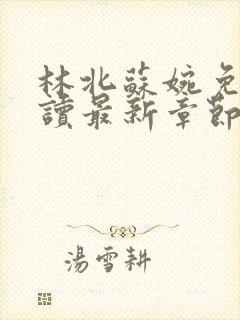 林北蘇婉免
讀最新章節
湯雪耕